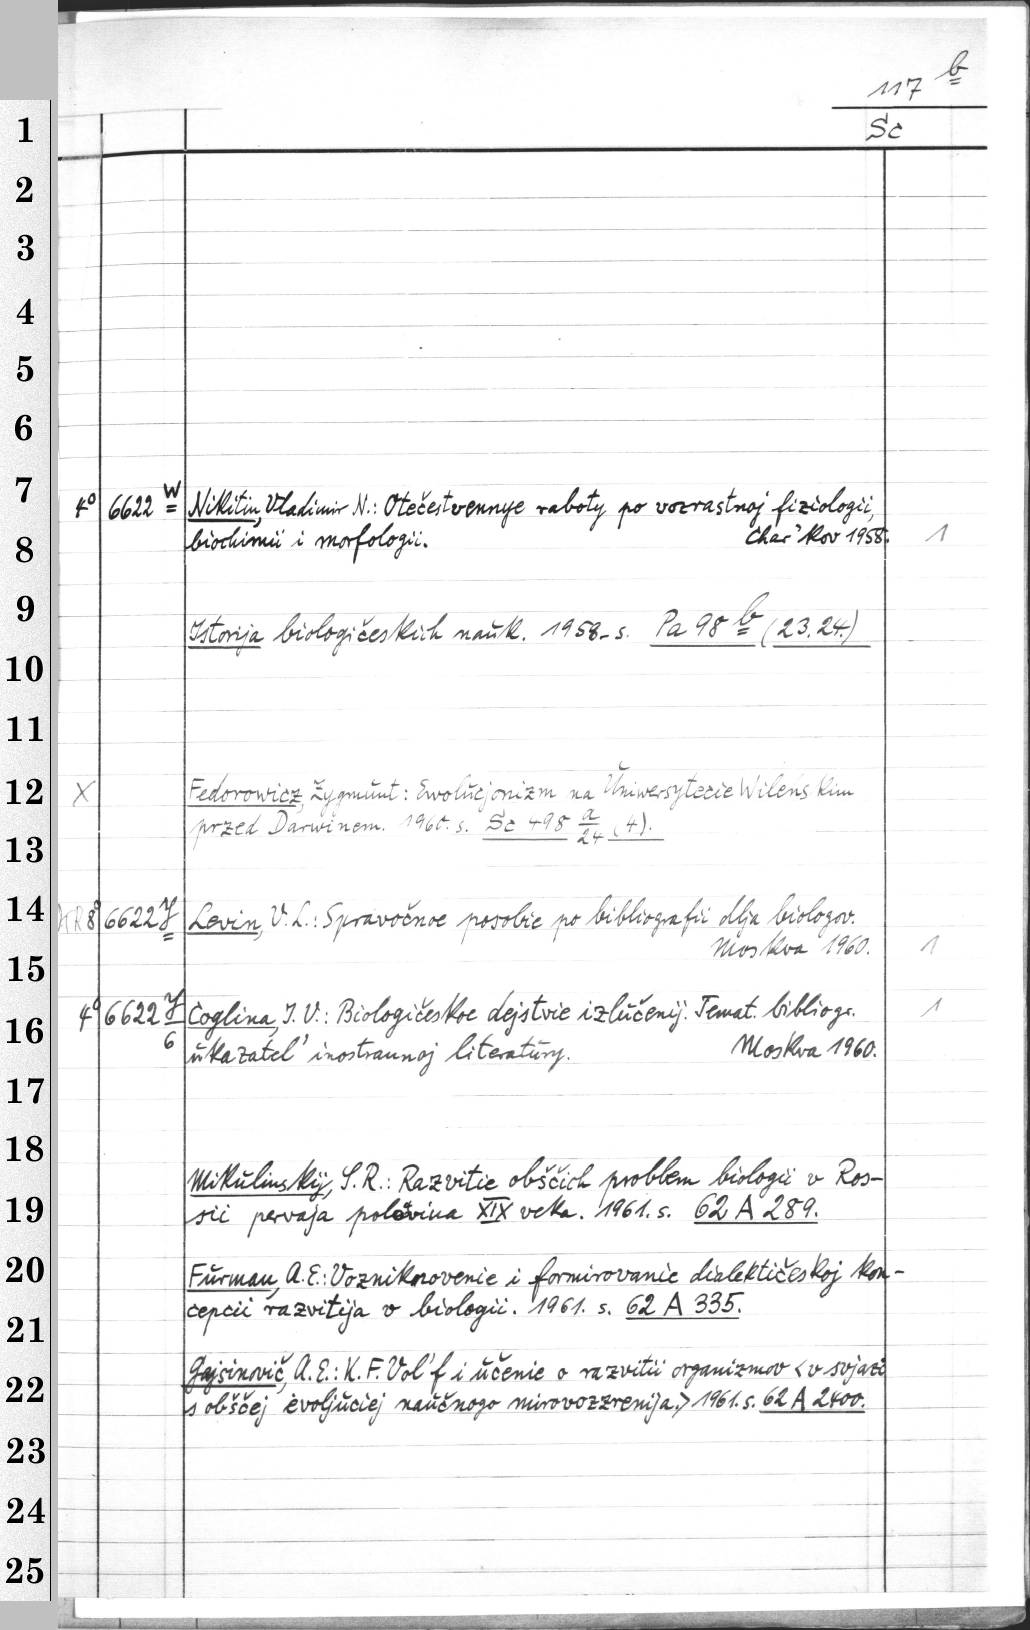 117 b
Sc
1
2
3
4
5
6
7
4° 6622 W Nikitin, Vladimir N.: Otečestvennye raboty po vozrastnoj fiziologii,
8 biochimii i morfologii. Char'kov 1958. 1
9
Istorija biologičeskich nauk. 1958-s. Pa 98 b (23.24.)
10
11
12 X Fedorowicz, Zygmunt: Ewolucjonizm na Uniwersytecie Wileńskim
przed Darwinem. 1960. s. Sc 498 a/24 (4).
13
14 HR 8° 6622 y Levin, V.L.: Spravočnoe posobie po bibliografii dlja biologov.
15 Moskva 1960. 1
4° 6622 y/6 Coglina, I.V.: Biologičeskoe dejstvie izlučenij. Temat. bibliogr. 1
16 ukazatel' inostrannoj literatury. Moskva 1960.
17
18
Mikulinskij, S.R.: Razvitie obščich problem biologii v Ros-
19 sii pervaja polovina XIX veka. 1961. s. 62 A 289.
20 Furman, A.E.: Vozniknovenie i formirovanie dialektičeskoj kon-
21 cepcii razvitija v biologii. 1961. s. 62 A 335.
Gajsinovič, A.E.: K.F. Vol'f i učenie o razvitii organizmov <v svjazi
22 s obščej evoljuciej naučnogo mirovozzrenija.> 1961. s. 62 A 2400.
23
24
25